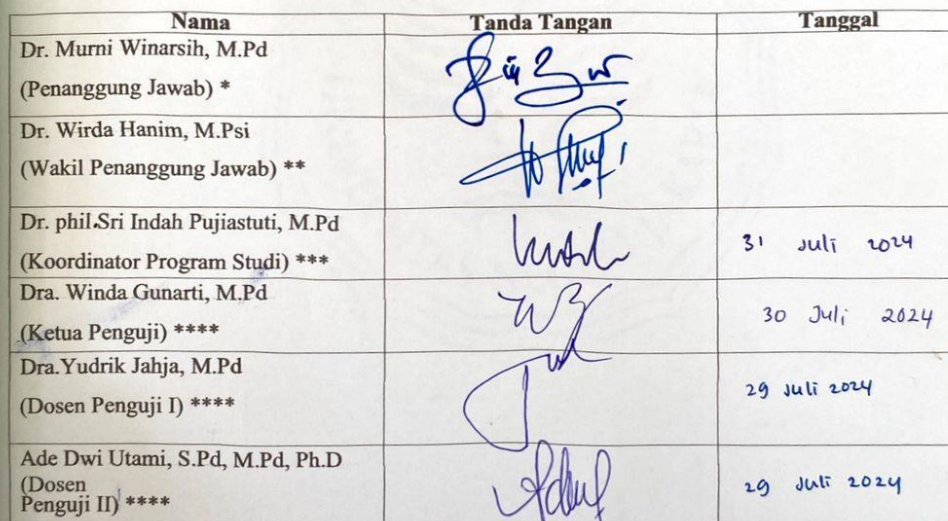 Nama Tanda Tangan Tanggal
Dr. Murni Winarsih, M.Pd
(Penanggung Jawab) *
Dr. Wirda Hanim, M.Psi
(Wakil Penanggung Jawab) **
Dr. phil.Sri Indah Pujiastuti, M.Pd
(Koordinator Program Studi) ***
31 Juli 2024
Dra. Winda Gunarti, M.Pd
(Ketua Penguji) ****
30 Juli 2024
Dra.Yudrik Jahja, M.Pd
(Dosen Penguji I) ****
29 Juli 2024
Ade Dwi Utami, S.Pd, M.Pd, Ph.D
(Dosen
Penguji II) ****
29 Juli 2024